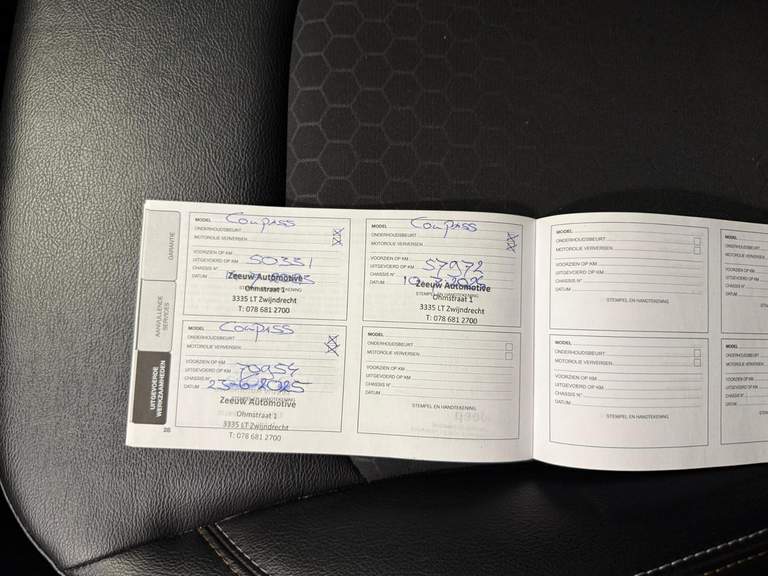 GARANTIE
AANVULLENDE SERVICES
UITGEVOERDE WERKZAAMHEDEN
MODEL Compass
ONDERHOUDSBEURT
MOTOROLIE VERVERSEN
VOORZIEN OP KM
UITGEVOERD OP KM 50331
CHASSIS N°
DATUM
Zeeuw Automotive
Ohmstraat 1
3335 LT Zwijndrecht
T: 078 681 2700
MODEL Compass
ONDERHOUDSBEURT
MOTOROLIE VERVERSEN
VOORZIEN OP KM
UITGEVOERD OP KM 57972
CHASSIS N°
DATUM
Zeeuw Automotive
STEMPEL EN HANDTEKENING
Ohmstraat 1
3335 LT Zwijndrecht
T: 078 681 2700
MODEL Compass
ONDERHOUDSBEURT
MOTOROLIE VERVERSEN
VOORZIEN OP KM
UITGEVOERD OP KM 70954
CHASSIS N°
DATUM 23-6-2025
Zeeuw Automotive
Ohmstraat 1
3335 LT Zwijndrecht
T: 078 681 2700
MODEL
ONDERHOUDSBEURT
MOTOROLIE VERVERSEN
VOORZIEN OP KM
UITGEVOERD OP KM
CHASSIS N°
DATUM
STEMPEL EN HANDTEKENING
MODEL
ONDERHOUDSBEURT
MOTOROLIE VERVERSEN
VOORZIEN OP KM
UITGEVOERD OP KM
CHASSIS N°
DATUM
STEMPEL EN HANDTEKENING
MODEL
ONDERHOUDSBEURT
MOTOROLIE VERVERSEN
VOORZIEN OP KM
UITGEVOERD OP KM
CHASSIS N°
DATUM
STEMPEL EN HANDTEKENING
MODEL
ONDERHOUDSBEURT
MOTOROLIE VERVERSEN
VOORZIEN OP KM
UITGEVOERD OP KM
CHASSIS N°
DATUM
MODEL
ONDERHOUDSBEURT
MOTOROLIE VERVERSEN
VOORZIEN OP KM
UITGEVOERD OP KM
CHASSIS N°
DATUM